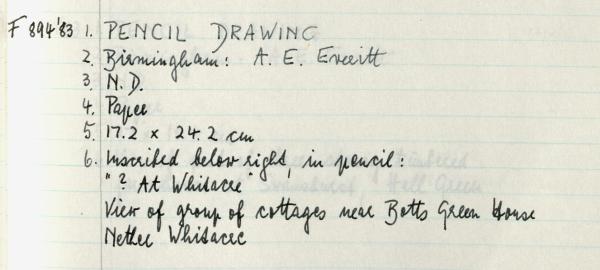 F 894'83 1. PENCIL DRAWING
2. Birmingham: A. E. Everitt
3. N.D.
4. Paper
5. 17.2 x 24.2 cm
6. Inscribed below right, in pencil:
"? At Whitacre"
View of group of cottages near Botts Green House
Nether Whitacre